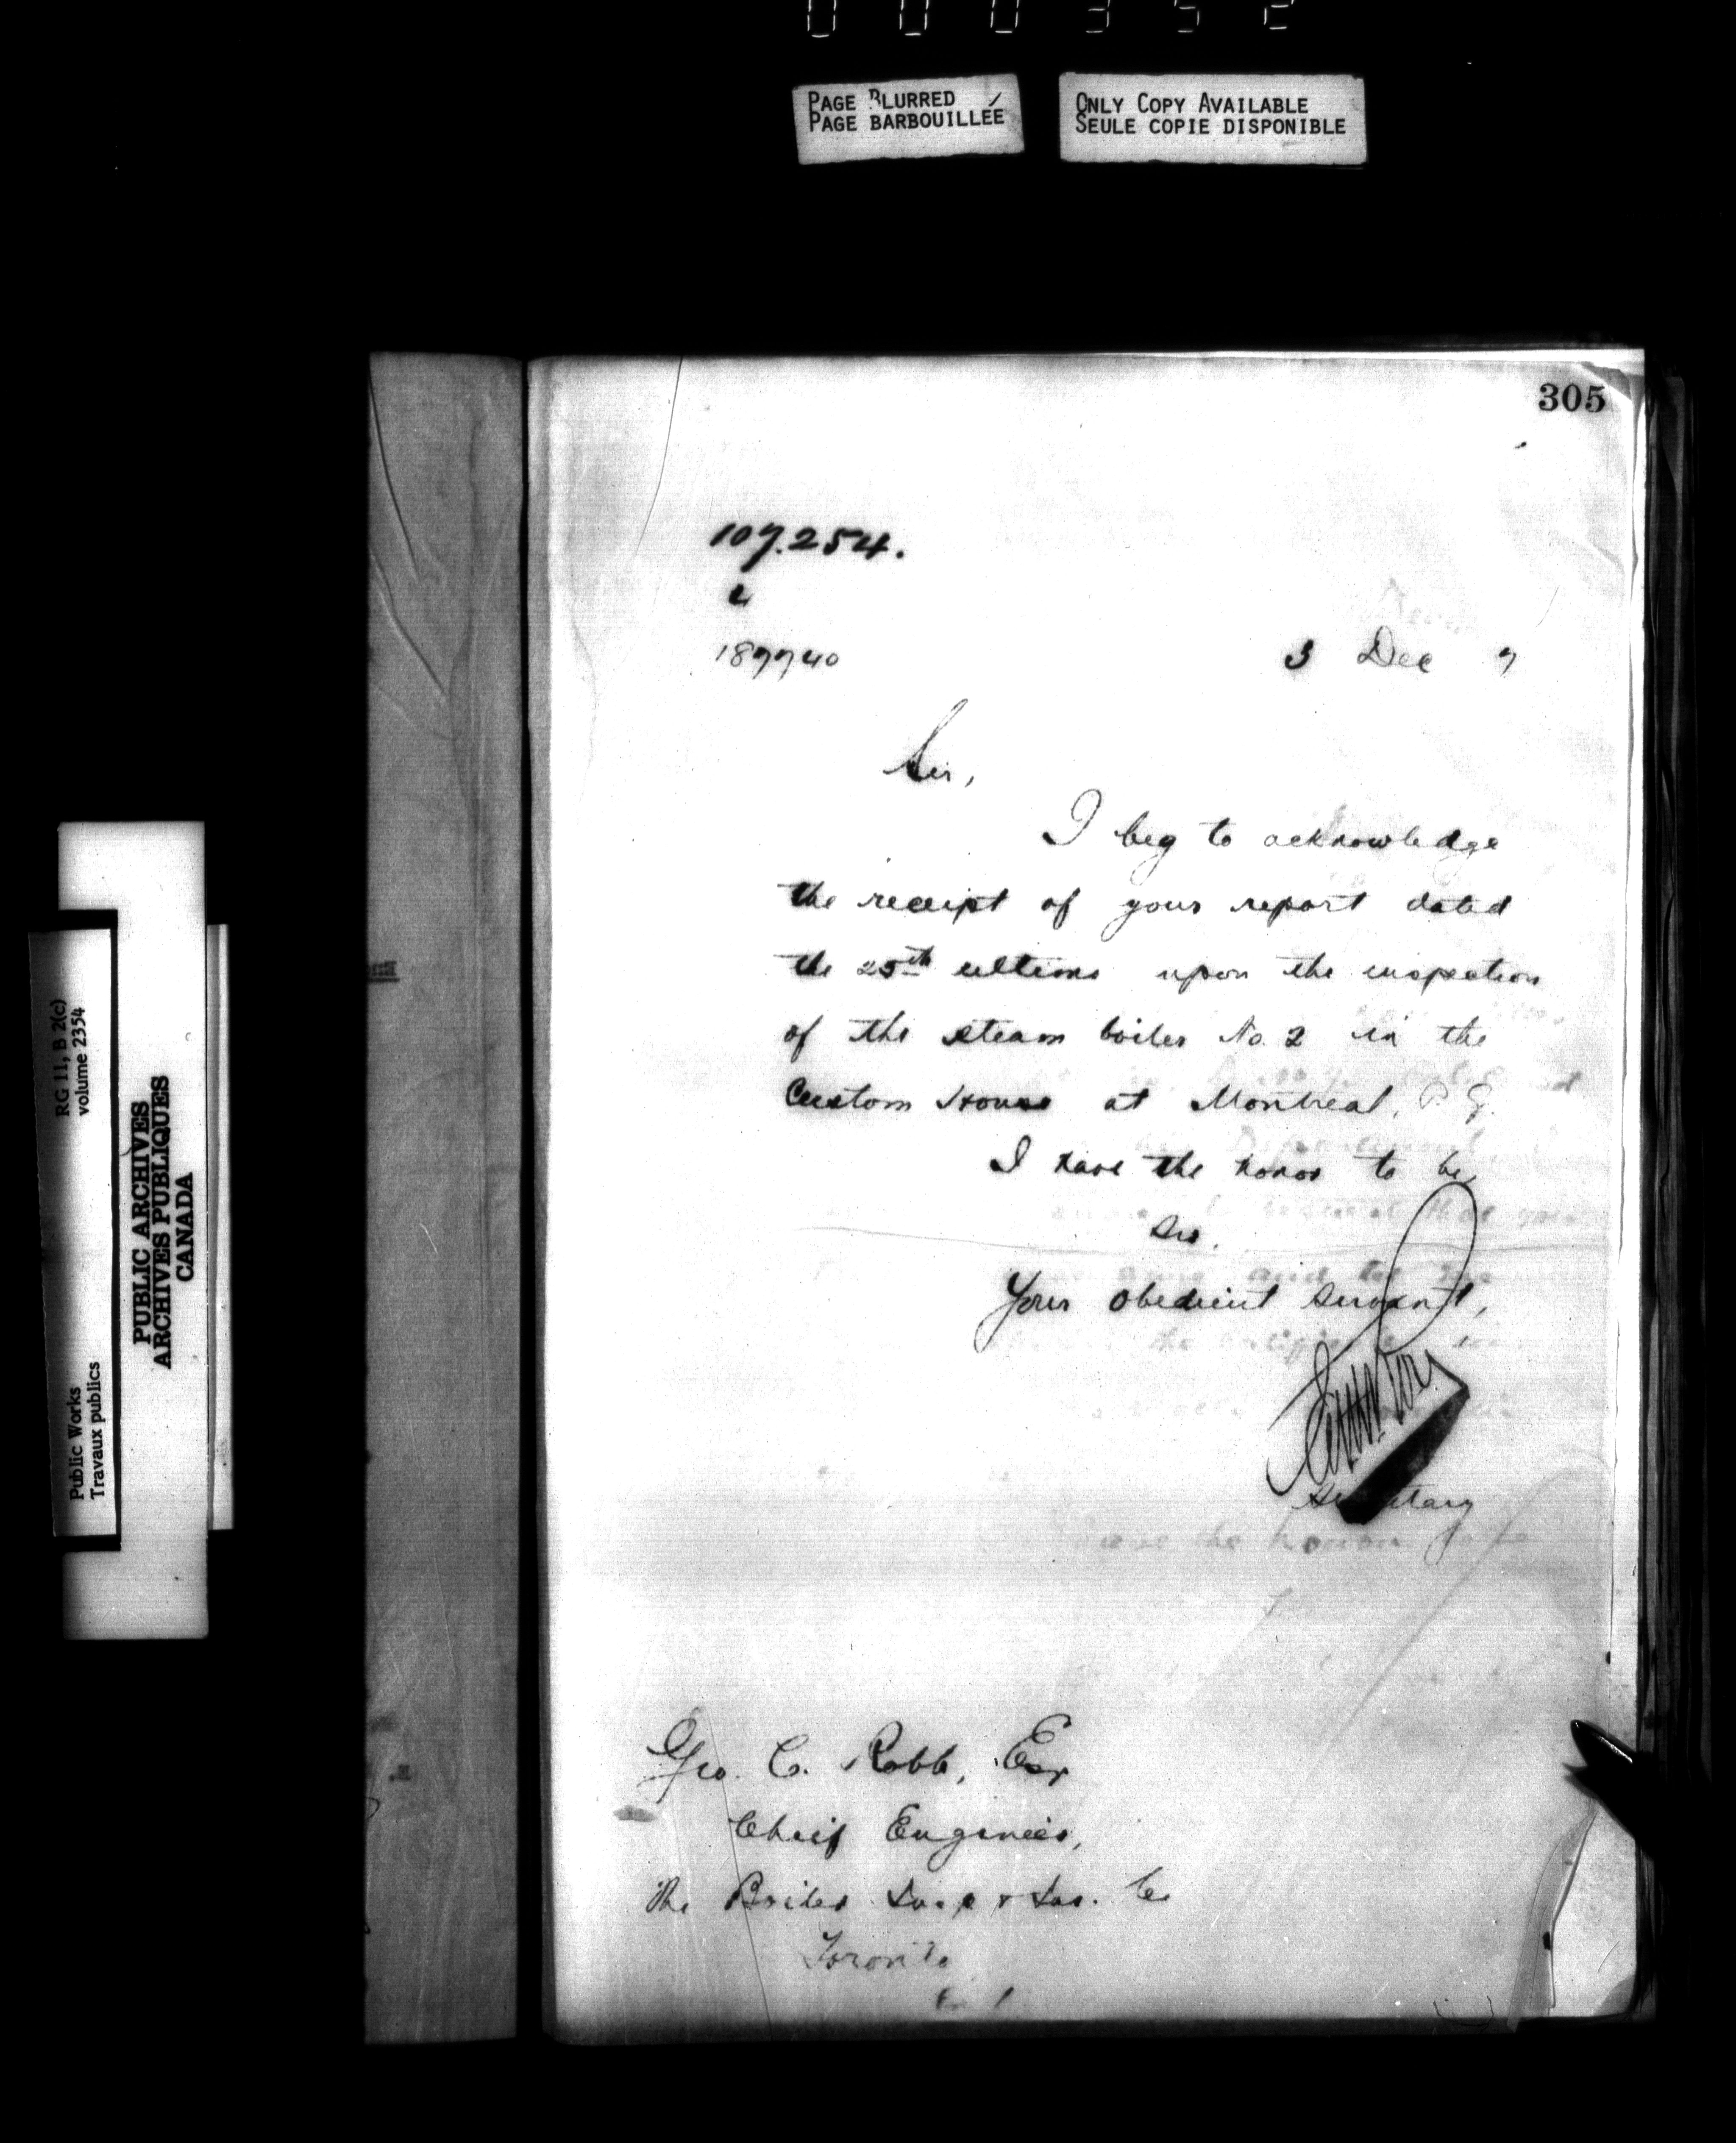 000352
PAGE BLURRED
PAGE BARBOUILLÉE
ONLY COPY AVAILABLE
SEULE COPIE DISPONIBLE
RG 11, B 2(c)
volume 2354
PUBLIC ARCHIVES
ARCHIVES PUBLIQUES
CANADA
Public Works
Travaux publics
305
107.254.
187740
3 Dec 7
Sir,
I beg to acknowledge
the receipt of your report dated
the 25th ultimo upon the inspection
of the steam boiler No. 2 in the
Custom House at Montreal, P. Q.
I have the honor to be
Sir,
Your obedient servant,
Secretary
Geo. C. Robb, Esq
Chief Engineer,
The Boiler Insp & Ins. Co
Toronto